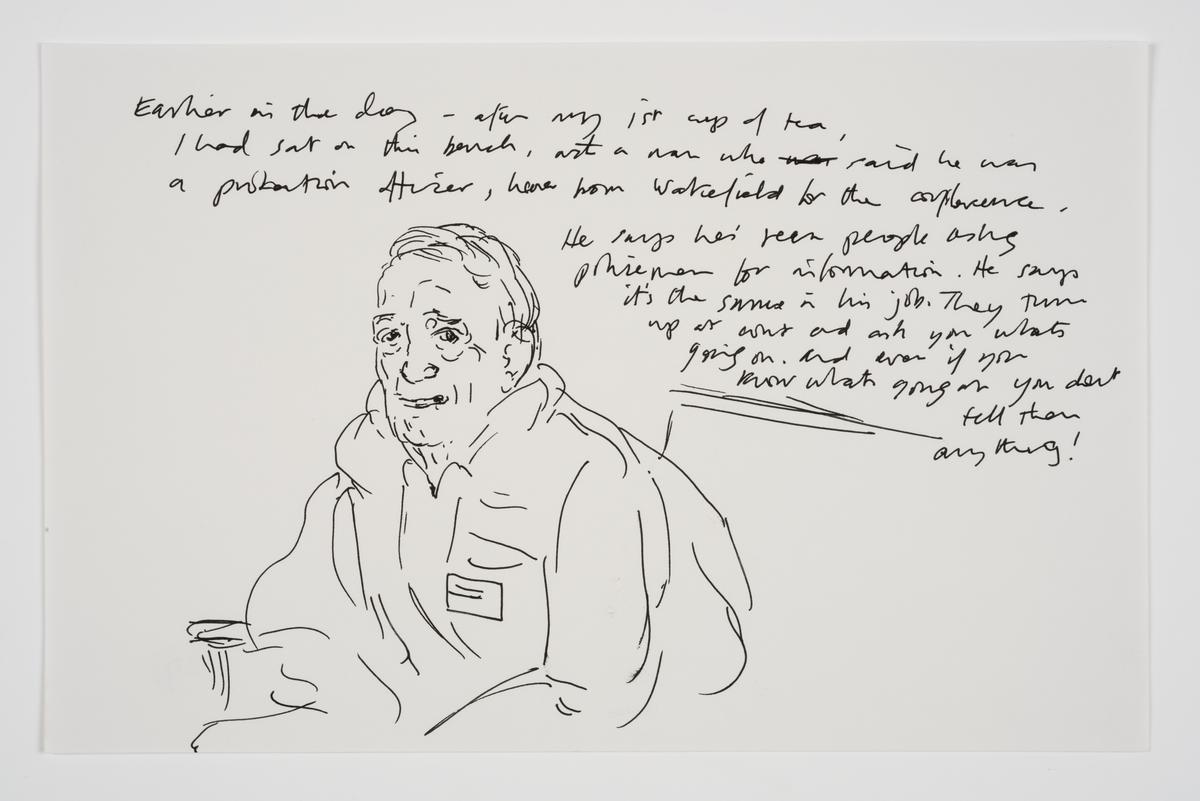 Earlier in the day – after my 1st cup of tea,
I had sat on this bench, next a man who was said he was
a probation officer, here from Wakefield for the conference.
He says he's seen people asking
policemen for information. He says
it's the same in his job. They turn
up at court and ask you whats
going on. And even if you
know whats going on you dont
tell them
anything!